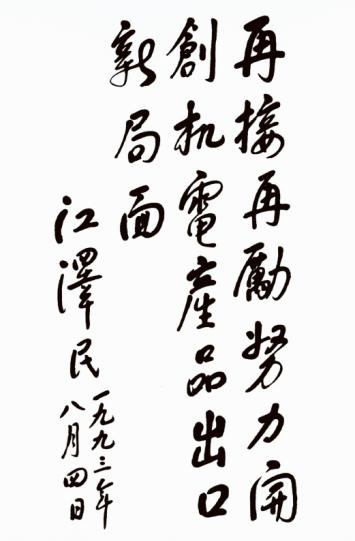 再接再勵努力開
創机電產品出口
新局面
江澤民
一九九三年
八月四日